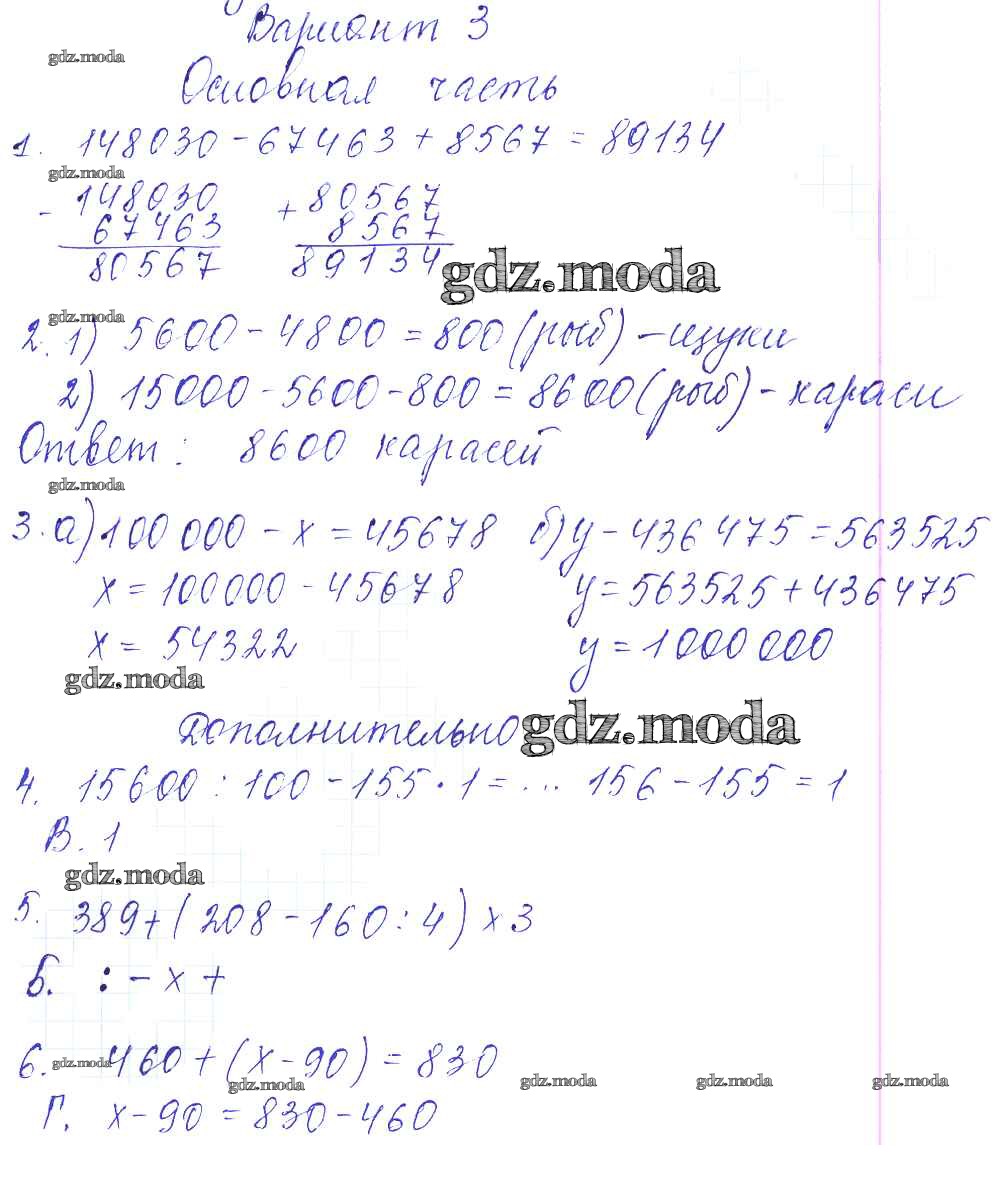 Вариант 3
gdz.moda
Основная часть
1. 148030 - 67463 + 8567 = 89134
gdz.moda
- 148030 + 80567
67463 8567
80567 89134
gdz.moda
gdz.moda
2. 1) 5600 - 4800 = 800 (рыб) - щуки
2) 15000 - 5600 - 800 = 8600 (рыб) - караси
Ответ: 8600 карасей
gdz.moda
3. а) 100 000 - x = 45678 б) y - 436 475 = 563525
x = 100000 - 45678 y = 563525 + 436475
x = 54322 y = 1000 000
gdz.moda
Дополнительно
gdz.moda
4. 15600 : 100 - 155 · 1 = ... 156 - 155 = 1
В. 1
gdz.moda
5. 389 + (208 - 160 : 4) x 3
Б. : - x +
6. 460 + (x - 90) = 830
gdz.moda
gdz.moda gdz.moda gdz.moda gdz.moda
Г. x - 90 = 830 - 460